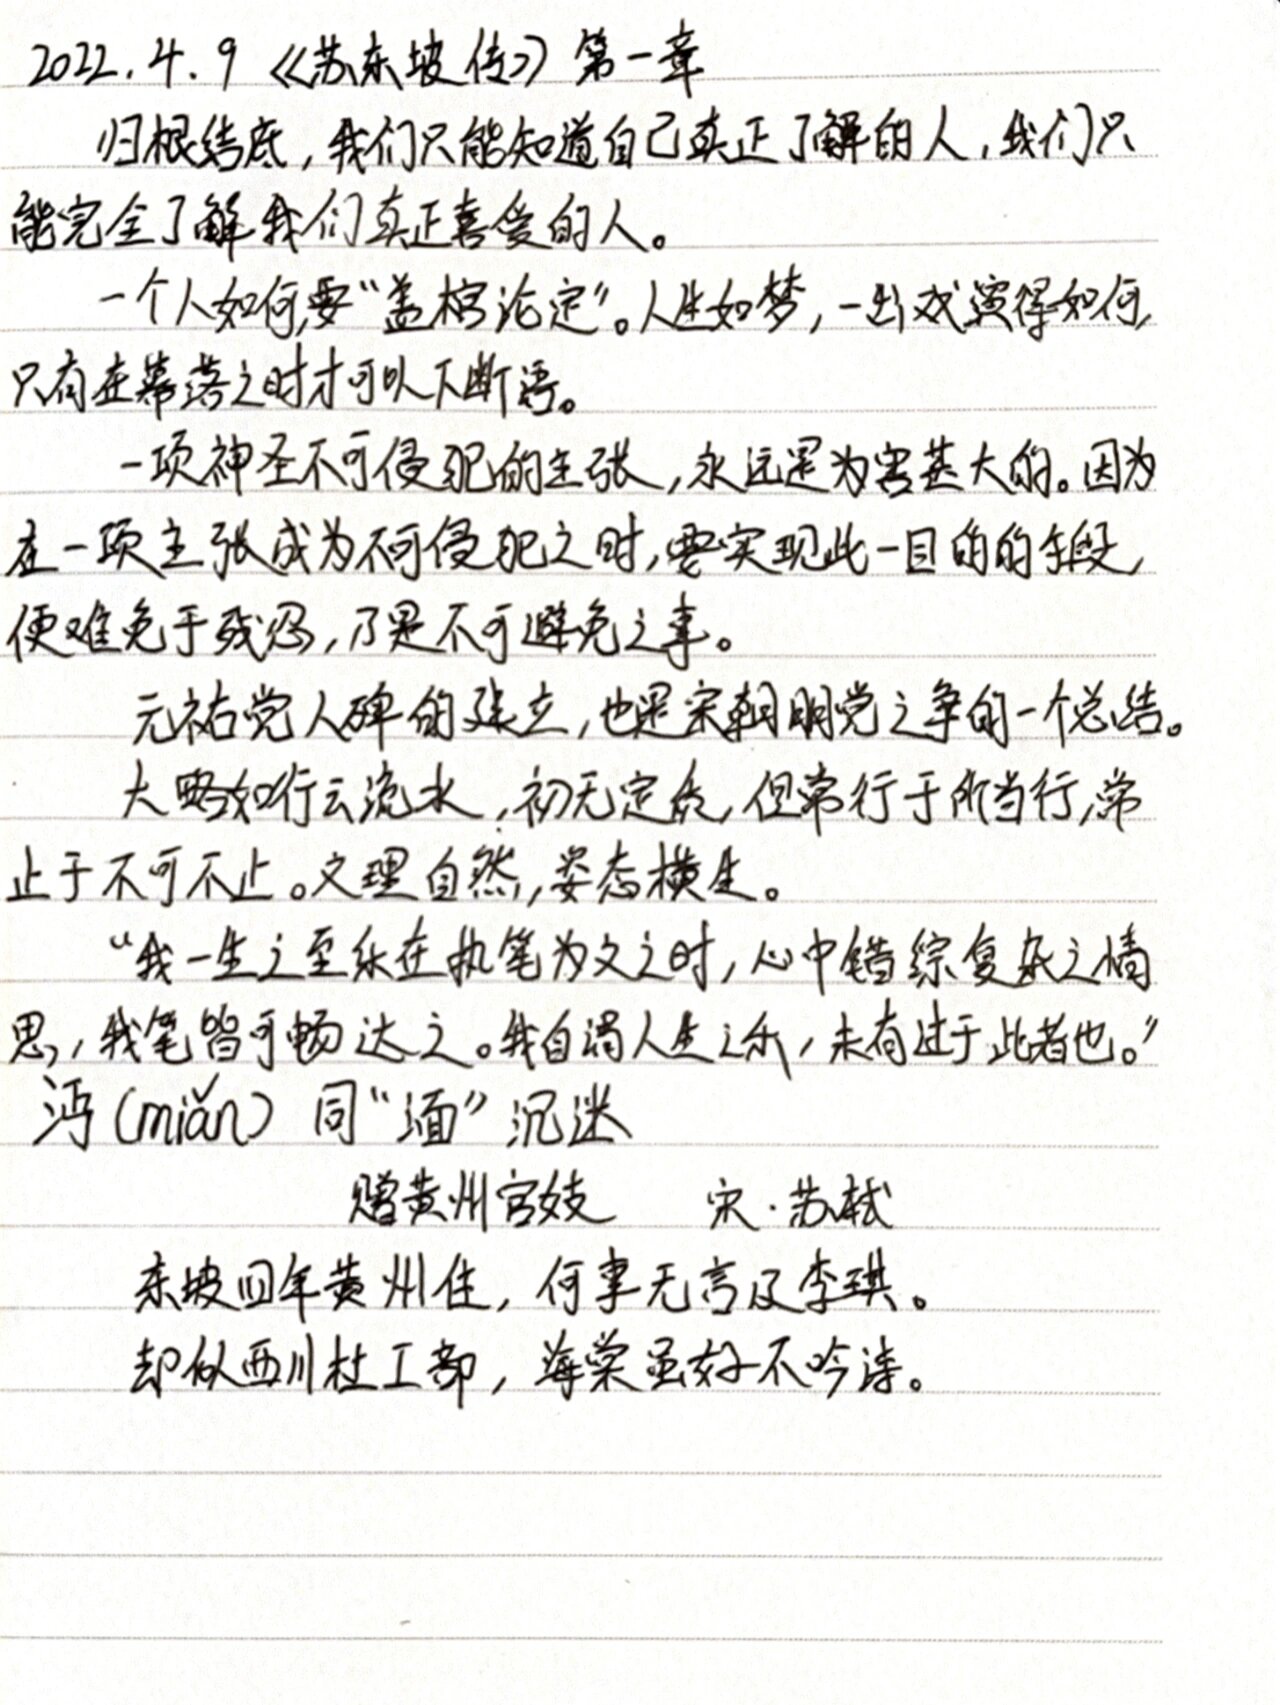 2022.4.9《苏东坡传》第一章
归根结底，我们只能知道自己真正了解的人，我们只
能完全了解我们真正喜爱的人。
一个人如何，要“盖棺论定”。人生如梦，一出戏演得如何，
只有在幕落之时才可以下断语。
一项神圣不可侵犯的主张，永远是为害甚大的。因为
在一项主张成为不可侵犯之时，要实现此一目的的手段，
便难免于残忍，乃是不可避免之事。
元祐党人碑的建立，也是宋朝朋党之争的一个总结。
大略如行云流水，初无定质，但常行于所当行，常
止于不可不止。文理自然，姿态横生。
“我一生之至乐在执笔为文之时，心中错综复杂之情
思，我笔皆可畅达之。我自谓人生之乐，未有过于此者也。”
沔（miǎn）同“湎”沉迷
赠黄州官妓 宋·苏轼
东坡四年黄州住，何事无言及李琪。
却似西川杜工部，海棠虽好不吟诗。